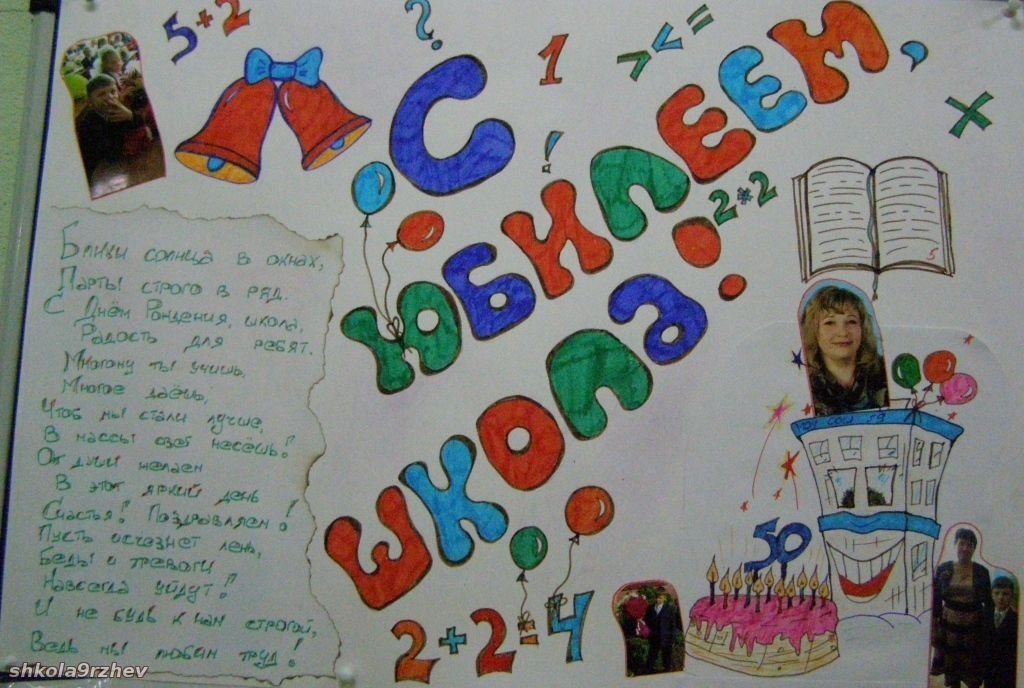 5+2
?
1
> < =
×
!
2*2
С
ЮБИЛЕЕМ,
ШКОЛА
Блики солнца в окнах,
Парты строго в ряд.
С Днём Рождения, школа,
Радость для ребят.
Многому ты учишь,
Многое даёшь,
Чтоб мы стали лучше,
В массы свет несёшь!
От души желаем
В этот яркий день
Счастья! Поздравляем!
Пусть исчезнет лень,
Беды и тревоги
Навсегда уйдут!
И не будь к нам строгой,
Ведь мы любим труд!
5
МОУ СОШ
50
2+2=4
shkola9rzhev